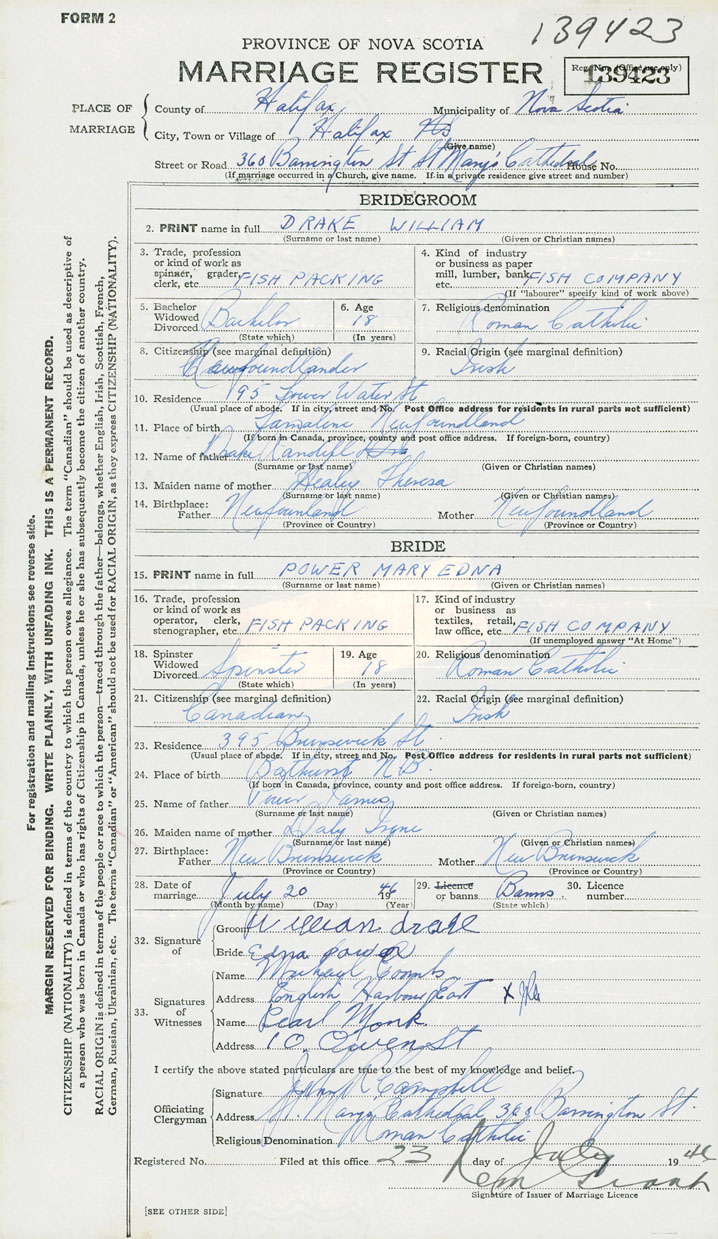 FORM 2
139423
PROVINCE OF NOVA SCOTIA
MARRIAGE REGISTER
Reg. No. (Office use only)
139423
PLACE OF MARRIAGE
County of Halifax Municipality of Nova Scotia
City, Town or Village of Halifax NS
(Give name)
Street or Road 360 Barrington St St Mary's Cathedral House No.
(If marriage occurred in a Church, give name. If in a private residence give street and number)
BRIDEGROOM
2. PRINT name in full DRAKE WILLIAM
(Surname or last name) (Given or Christian names)
3. Trade, profession or kind of work as spinner, grader, clerk, etc. FISH PACKING
4. Kind of industry or business as paper mill, lumber, bank, etc. FISH COMPANY
(If "labourer" specify kind of work above)
5. Bachelor Widowed Divorced Bachelor
(State which)
6. Age 18
(In years)
7. Religious denomination Roman Catholic
8. Citizenship (see marginal definition) Newfoundlander
9. Racial Origin (see marginal definition) Irish
10. Residence 195 Lower Water St
(Usual place of abode. If in city, street and No. Post Office address for residents in rural parts not sufficient)
11. Place of birth Lamaline Newfoundland
(If born in Canada, province, county and post office address. If foreign-born, country)
12. Name of father Drake
(Surname or last name) (Given or Christian names)
13. Maiden name of mother Healey Theresa
(Surname or last name) (Given or Christian names)
14. Birthplace: Father Newfounland Mother Newfoundland
(Province or Country) (Province or Country)
BRIDE
15. PRINT name in full POWER MARY EDNA
(Surname or last name) (Given or Christian names)
16. Trade, profession or kind of work as operator, clerk, stenographer, etc. FISH PACKING
17. Kind of industry or business as textiles, retail, law office, etc. FISH COMPANY
(If unemployed answer "At Home")
18. Spinster Widowed Divorced Spinster
(State which)
19. Age 18
(In years)
20. Religious denomination Roman Catholic
21. Citizenship (see marginal definition) Canadian
22. Racial Origin (see marginal definition) Irish
23. Residence 395 Brunswick St.
(Usual place of abode. If in city, street and No. Post Office address for residents in rural parts not sufficient)
24. Place of birth Bathurst N.B.
(If born in Canada, province, county and post office address. If foreign-born, country)
25. Name of father Power James
(Surname or last name) (Given or Christian names)
26. Maiden name of mother Daly Irene
(Surname or last name) (Given or Christian names)
27. Birthplace: Father New Brunswick Mother New Brunswick
(Province or Country) (Province or Country)
28. Date of marriage July 20 1946
(Month by name) (Day) (Year)
29. Licence or banns Banns
(State which)
30. Licence number
32. Signature of
Groom William drake
Bride Edna power
33. Signatures of Witnesses
Name Michael Coombs
Address English Harbour East
Name Pearl Monk
Address 10 Owen St
I certify the above stated particulars are true to the best of my knowledge and belief.
Officiating Clergyman
Signature John Campbell
Address St. Mary's Cathedral 360 Barrington St.
Religious Denomination Roman Catholic
Registered No. Filed at this office 23 day of July 1946
Signature of Issuer of Marriage Licence
[SEE OTHER SIDE]
For registration and mailing instructions see reverse side.
MARGIN RESERVED FOR BINDING. WRITE PLAINLY, WITH UNFADING INK. THIS IS A PERMANENT RECORD.
CITIZENSHIP (NATIONALITY) is defined in terms of the country to which the person owes allegiance. The term "Canadian" should be used as descriptive of
a person who was born in Canada or who has rights of Citizenship in Canada, unless he or she has subsequently become the citizen of another country.
RACIAL ORIGIN is defined in terms of the people or race to which the person—traced through the father—belongs, whether English, Irish, Scottish, French,
German, Russian, Ukrainian, etc. The terms "Canadian" or "American" should not be used for RACIAL ORIGIN, as they express CITIZENSHIP (NATIONALITY).